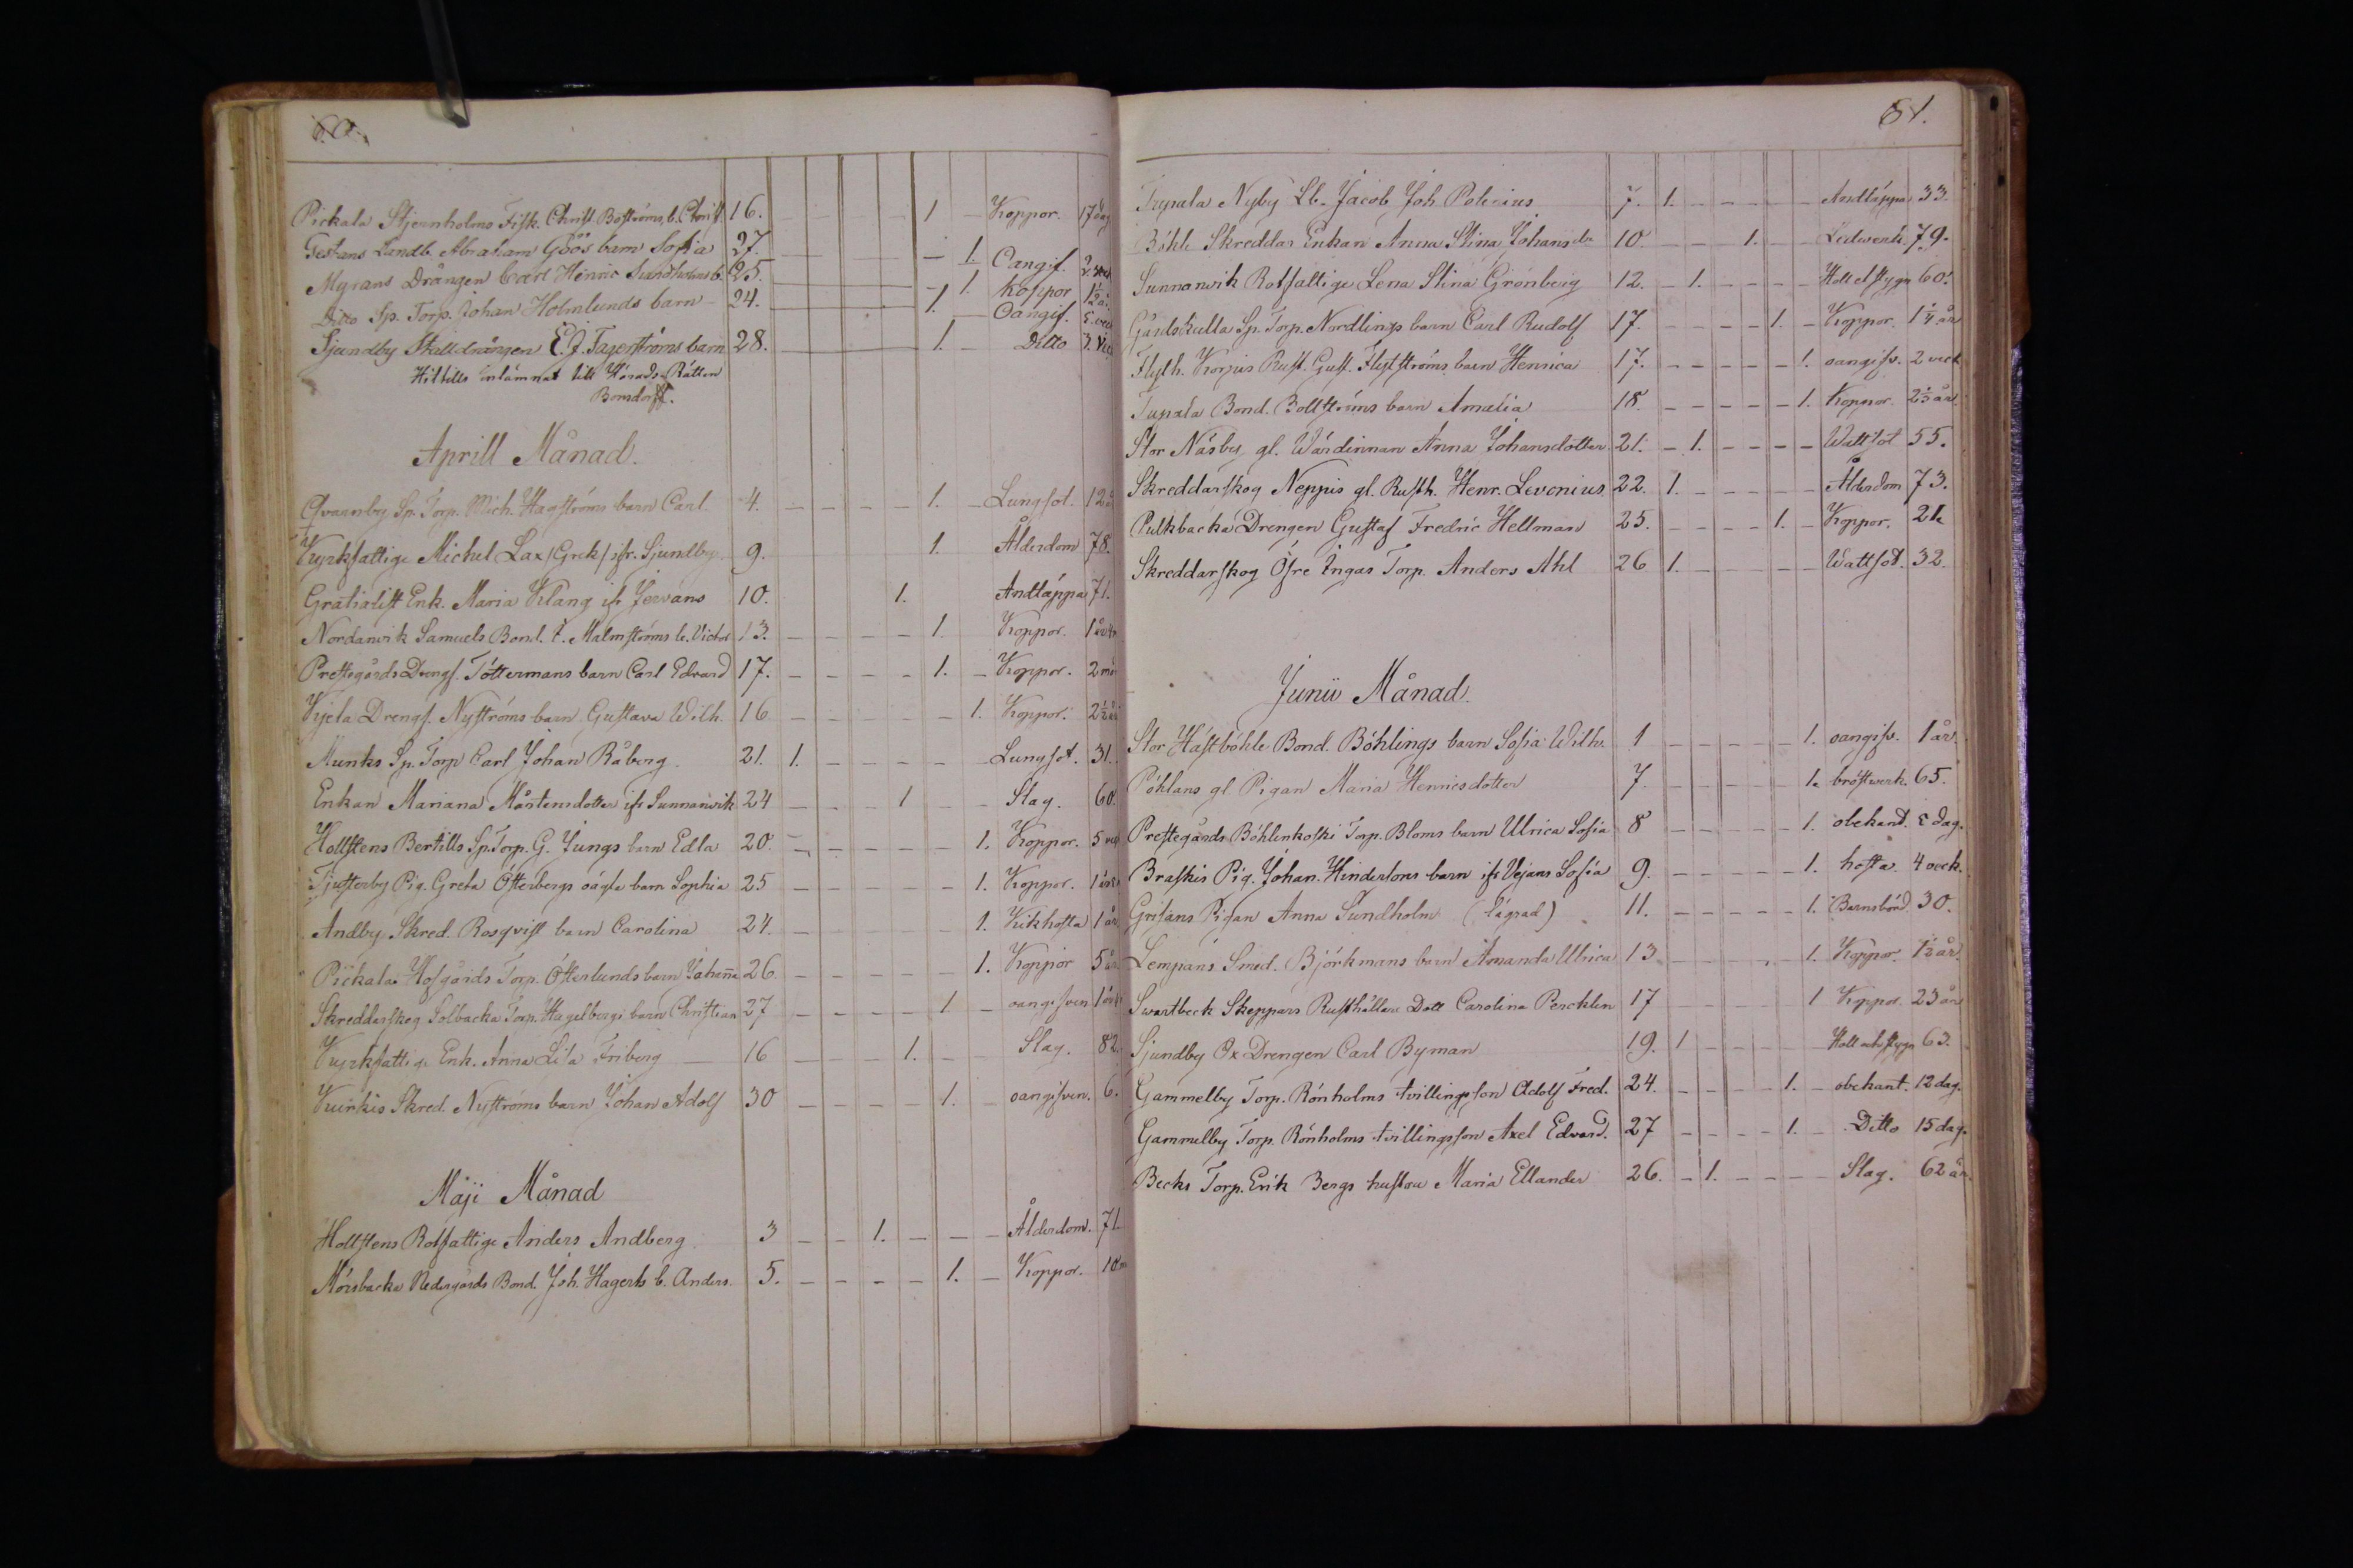 60.
Pickala Stjernholms Fisk. Christ. Boströms b. Christ. 16. 1 Koppor. 17 dag
Testans Landb. Abraham Göös barn Sofia 27. 1. Oangif. 2 veck
Myrans Drängen Carl Henric Sundholms b. 25. 1. Koppor 1½ å.
Ditto Sp. Torp. Johan Holmlunds barn 24. 1. Oangif. 5. veck
Sjundby Stalldrängen E. J. Fagerströms barn 28. 1. Ditto 3. Veck
Hittills inlämnat till Härads Rätten
Bomdorff.
Aprill Månad.
Qvarnby Sp. Torp. Mich. Hagströms barn Carl 4. 1. Lungsot. 12
Kyrkfattige Michel Lax /Grek/ ifr. Sjundby 9. 1. Ålderdom 78.
Gratialist Enk. Maria Klang ifr Jervans 10. 1. Andtäppa 71.
Nordanvik Samuels Bond. C. Malmströms b. Victor 13. 1. Koppor. 1 år
Prestegårds Drengs. Töttermans barn Carl Edvard 17. 1. Koppor. 2 mån
Kjela Drengs. Nyströms barn Gustava Wilh. 16 1. Koppor. 2½ år
Munks Sp. Torp Carl Johan Råberg. 21. 1. Lungsot. 31.
Enkan Mariana Mårtensdotter ifr Sunnanvik 24 1 Slag. 60.
Hollstens Bertills Sp. Torp. G. Ljungs barn Edla 20. 1. Koppor. 5 veck
Tjusterby Pig. Greta Österbergs oägta barn Sophia 25 1. Koppor. 1 år
Andby Skred. Rosqvist barn Carolina 24. 1. Kikhosta 1 år
Pickala Hofgårds Torp. Österlunds barn Johanna 26. 1. Koppor 5 år
Skreddarskog Solbacka Torp. Hagelbergs barn Christian 27 1 oangifven 1 år
Kyrkfattige Enk. Anna Lisa Friberg 16 1. Slag. 82.
Kuirkis Skred. Nyströms barn Johan Adolf 30 1. oangifven. 6.
Maji Månad
Hollstens Rotfattige Anders Andberg. 3 1. Ålderdom. 71.
Mörsbacka Nedergårds Bond. Joh. Hagerts b. Anders. 5. 1. Koppor. 10 m
61.
Nyby Lb. Jacob Joh. Polerius 7. 1. Andtäppa 33.
Böhle Skreddar Enkan Anna Stina Johansdr 10. 1. Ledwerk 79.
Sunnanvik Rotfattige Lena Stina Grönberg 12. 1. Håll et styga 60.
Gårdskulla Sp. Torp. Nordlings barn Carl Rudolf 17. 1. Koppor. 1¼ år
Flyth. Korpis Rust. Gust. Flytströms barn Henrica 17. 1. oangifv. 2 veck
Bond. Bollströms barn Amalia 18. 1. Koppor. 2½ år
Stor Näsby gl. Wärdinnan Anna Johansdotter 21. 1. Wattsot 55.
Skreddarskog Neppis gl. Rusth. Henr. Levonius 22. 1. Ålderdom 73.
Pulkbacka Drengen Gustaf Fredric Hellman 25. 1. Koppor. 21.
Skreddarskog Öfre Ingas Torp. Anders Ahl 26 1. Wattsot. 32.
Junii Månad.
Stor Hästböhle Bond. Böhlings barn Sofia Wilh. 1 1. oangifv. 1 år.
Pöhlans gl Pigan Maria Henricsdotter 7. 1. bröstwerk. 65.
Prestegårds Böhlenkoski Torp. Bloms barn Ulrica Sofia 8 1. obekant. 8 dag.
Braskis Pig. Johan. Hindersons barn ifr Vejans Sofia 9. 1. hosta. 4 veck.
Grisans Pigan Anna Sundholm (lägrad) 11. 1. Barnsbörd. 30.
Lempans Smed. Björkmans barn Amanda Ulrica 13 1. Koppor. 1½ år.
Swartbeck Skeppars Rusthållare Dott Carolina Perchlin 17 1 Koppor. 23 år
Sjundby Ox Drengen Carl Byman 19. 1 Håll och styga 63.
Gammelby Torp. Rönholms tvillingsson Adolf Fred. 24. 1. obekant. 12 dag.
Gammelby Torp. Rönholms tvillingsson Axel Edvard. 27 1. Ditto 15 dag.
Becks Torp. Erik Bergs hustru Maria Ellander 26. 1. Slag. 62 år.